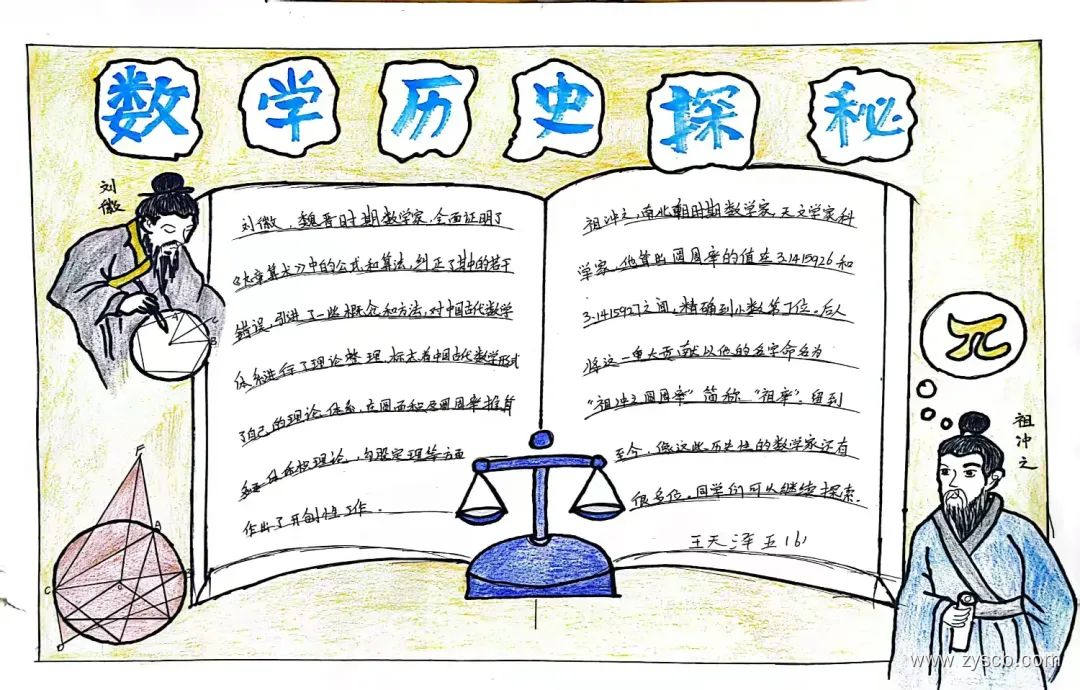 数学历史探秘
刘徽
刘徽，魏晋时期数学家，全面证明了
《九章算术》中的公式和算法，纠正了其中的若干
错误，引进了一些概念和方法，对中国古代数学
体系进行了理论整理，标志着中国古代数学形成
了自己的理论体系，在圆面积及圆周率推算
体积理论，勾股定理等方面
作出了开创性工作．
祖冲之，南北朝时期数学家，天文学家科
学家，他算出圆周率的值在3.1415926和
3.1415927之间，精确到小数第7位。后人
将这一重大贡献以他的名字命名为
"祖冲之圆周率"简称"祖率"。留到
至今，像这些历史性的数学家还有
很多位，同学们可以继续探索．
王天泽 五(6)
π
祖冲之
A
B
C
F
A
C
D
www.zyscb.com